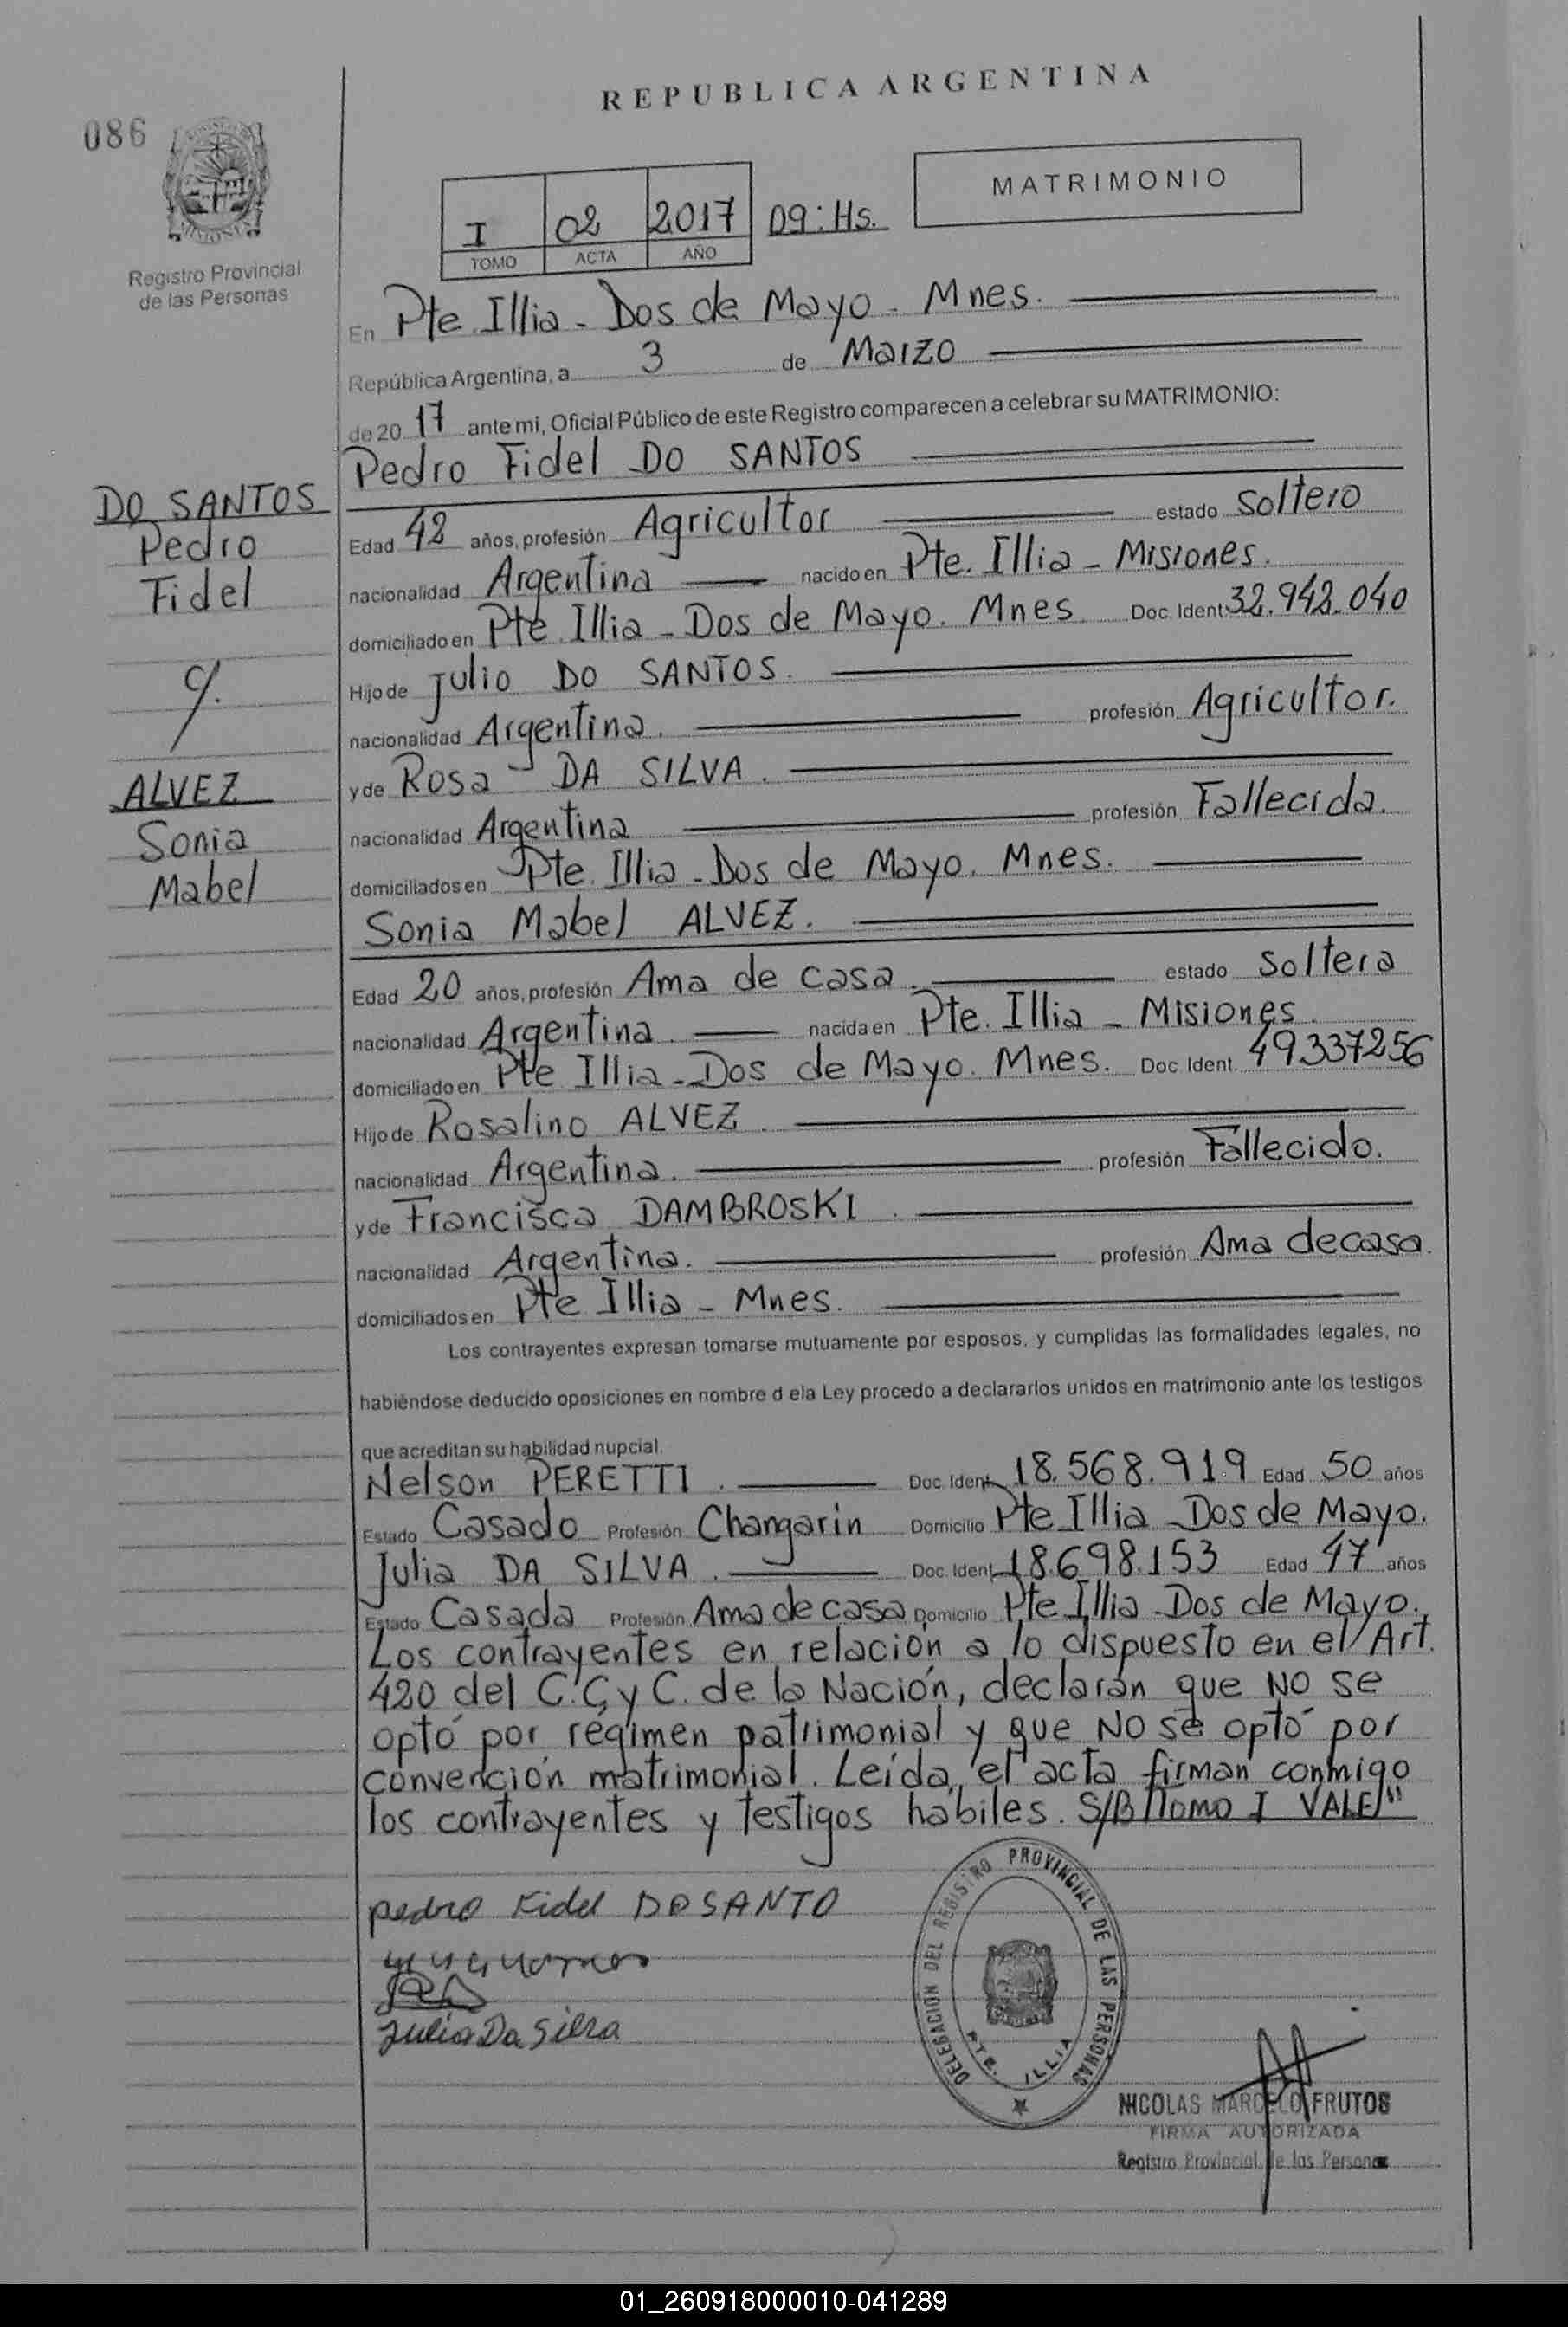 REPUBLICA ARGENTINA
086
MATRIMONIO
I 02 2017 09:Hs.
TOMO ACTA AÑO
Registro Provincial
de las Personas
En Pte. Illia - Dos de Mayo - Mnes.
República Argentina, a 3 de Marzo
de 20 17 ante mi, Oficial Público de este Registro comparecen a celebrar su MATRIMONIO:
Pedro Fidel DO SANTOS
DO SANTOS
Pedro
Fidel
c/.
ALVEZ
Sonia
Mabel
Edad 42 años, profesión Agricultor estado Soltero
nacionalidad Argentina nacido en Pte. Illia - Misiones.
domiciliado en Pte. Illia - Dos de Mayo. Mnes. Doc. Ident. 32.942.040
Hijo de Julio DO SANTOS.
nacionalidad Argentina. profesión Agricultor.
y de Rosa DA SILVA.
nacionalidad Argentina profesión Fallecida.
domiciliados en Pte. Illia - Dos de Mayo. Mnes.
Sonia Mabel ALVEZ.
Edad 20 años, profesión Ama de casa. estado Soltera
nacionalidad Argentina. nacida en Pte. Illia - Misiones.
domiciliado en Pte Illia - Dos de Mayo. Mnes. Doc. Ident. 49337256
Hijo de Rosalino ALVEZ.
nacionalidad Argentina. profesión Fallecido.
y de Francisca DAMBROSKI.
nacionalidad Argentina. profesión Ama de casa.
domiciliados en Pte Illia - Mnes.
Los contrayentes expresan tomarse mutuamente por esposos, y cumplidas las formalidades legales, no
habiéndose deducido oposiciones en nombre d ela Ley procedo a declararlos unidos en matrimonio ante los testigos
que acreditan su habilidad nupcial.
Nelson PERETTI. Doc. Ident. 18.568.919 Edad 50 años
Estado Casado Profesión Changarin Domicilio Pte Illia Dos de Mayo.
Julia DA SILVA. Doc. Ident. 18.698.153 Edad 47 años
Estado Casada Profesión Ama de casa Domicilio Pte Illia - Dos de Mayo.
Los contrayentes en relación a lo dispuesto en el Art.
420 del C.C y C. de la Nación, declaran que NO se
optó por régimen patrimonial y que NO se optó por
convención matrimonial. Leída, el acta firman conmigo
los contrayentes y testigos hábiles. S/B "Tomo I VALE"
pedro Fidel DOSANTO
Julia Da Silva
DELEGACION DEL REGISTRO PROVINCIAL DE LAS PERSONAS
PTE. ILLIA
NICOLAS MARCELO FRUTOS
FIRMA AUTORIZADA
Registro Provincial de las Personas
01_260918000010-041289